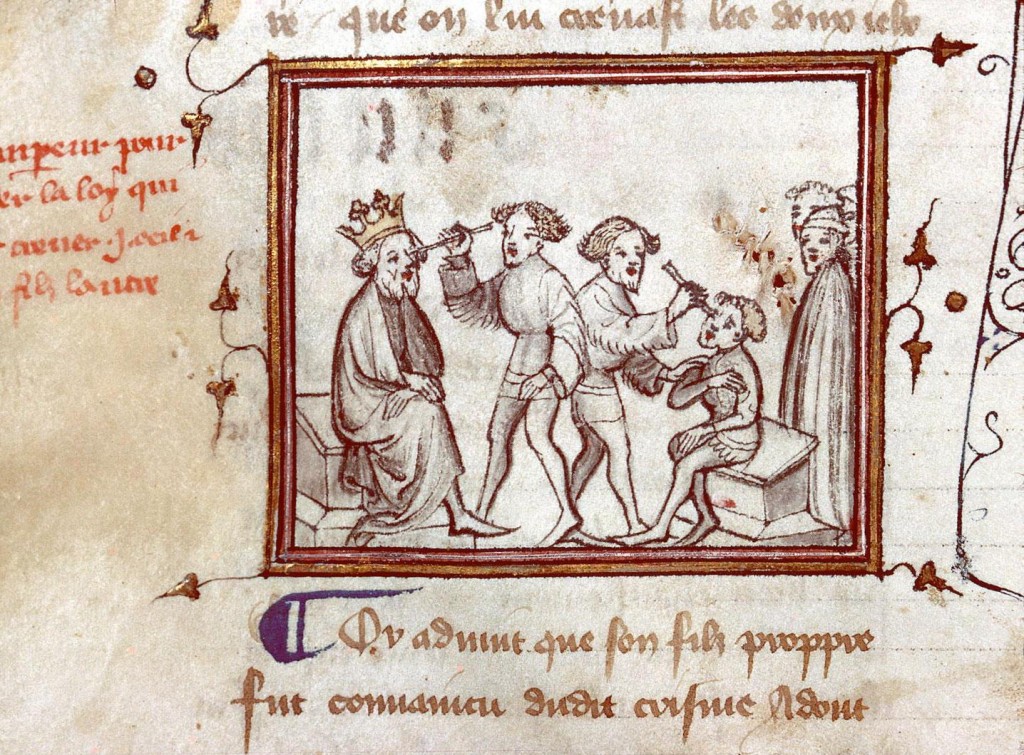 que on lui crevast les deux ielx
pour
la loy qui
crever
filz lautre
Or advint que son filz proppre
fut convaincu dudit crisme Adont